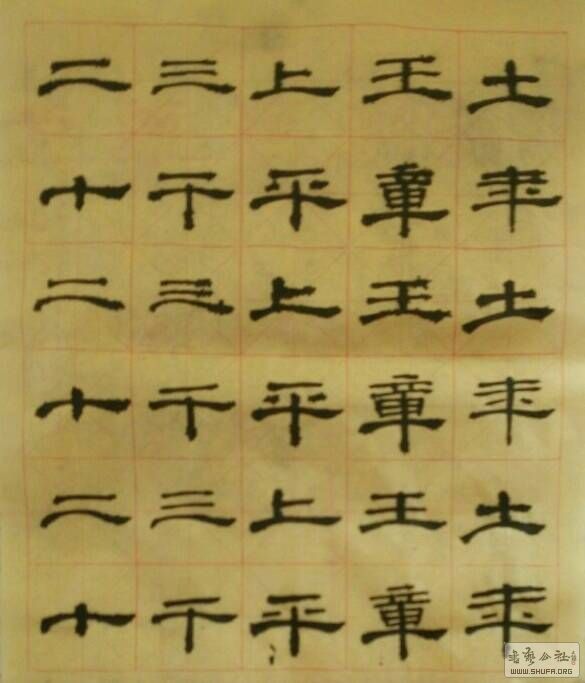 土年土年土年
王章王章王章
上平上平上平
三干三干三干
二十二十二十
书艺公社
WWW.SHUFA.ORG